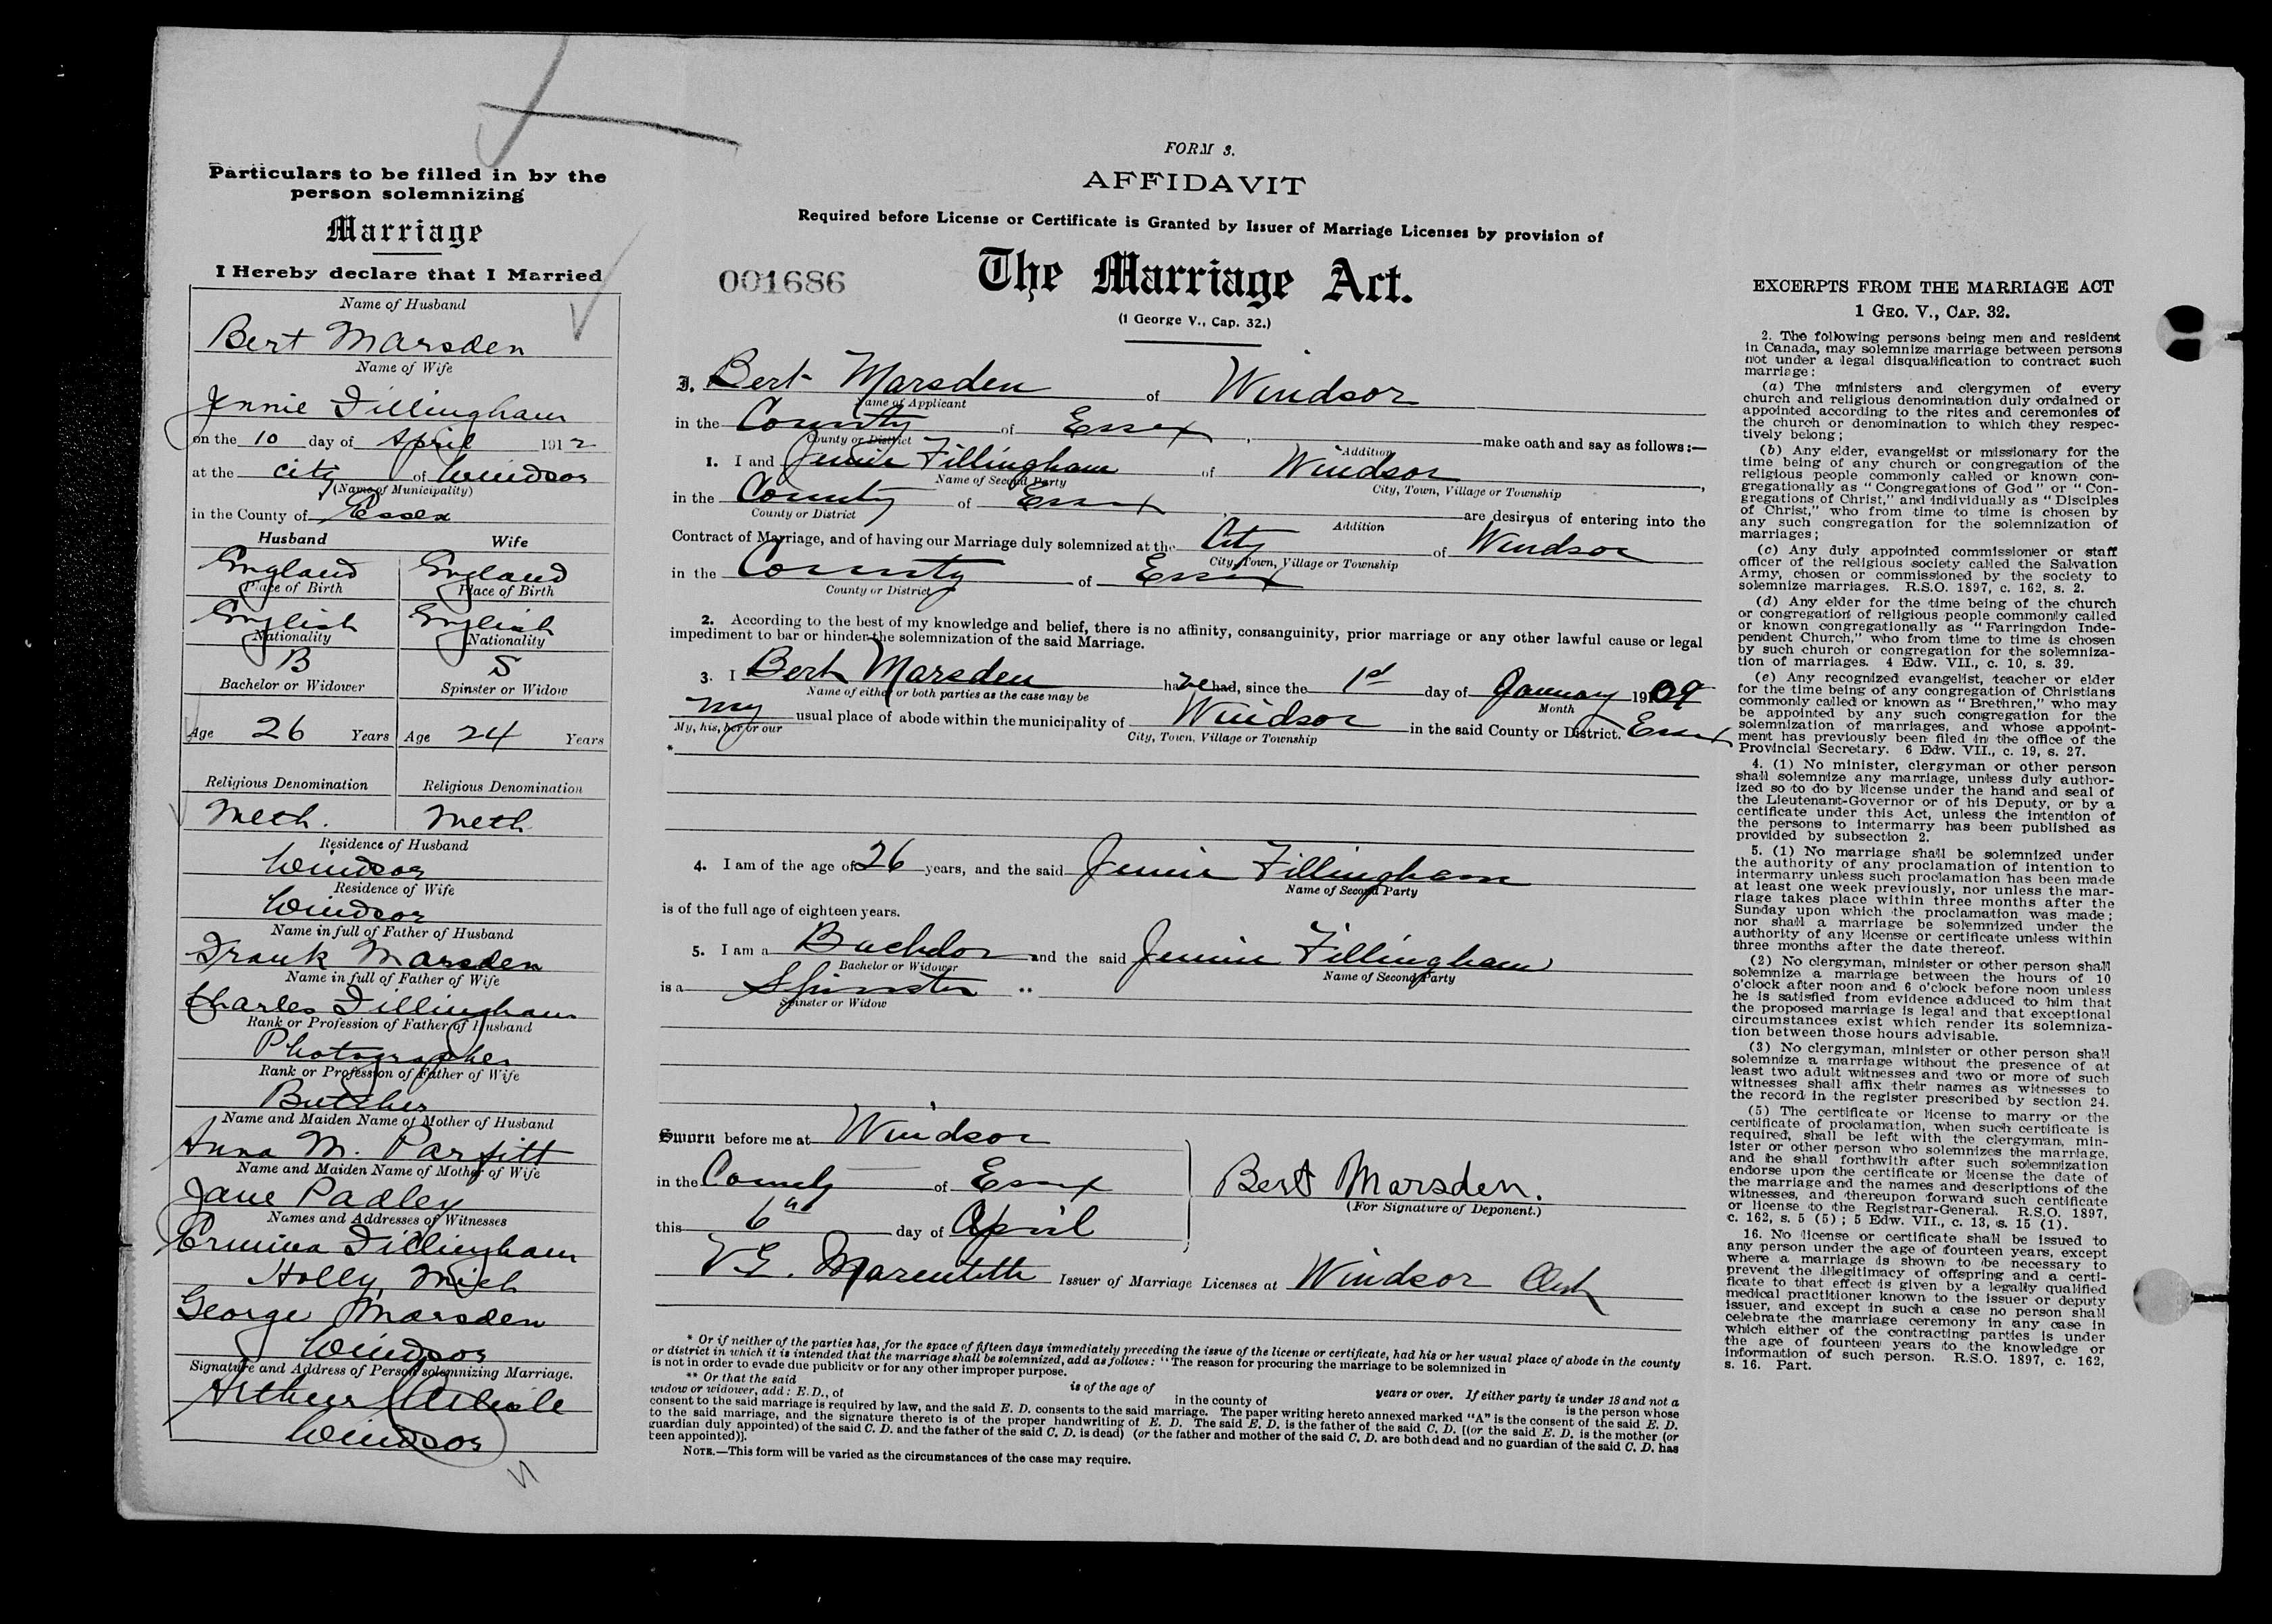 Particulars to be filled in by the
person solemnizing
Marriage
I Hereby declare that I Married
Name of Husband
Bert Marsden
Name of Wife
Jennie Fillingham
on the 10 day of April 1912
at the city of Windsor
(Name of Municipality)
in the County of Essex
Husband Wife
England England
Place of Birth Place of Birth
English English
Nationality Nationality
B S
Bachelor or Widower Spinster or Widow
Age 26 Years Age 24 Years
Religious Denomination Religious Denomination
Meth. Meth
Residence of Husband
Windsor
Residence of Wife
Windsor
Name in full of Father of Husband
Frank Marsden
Name in full of Father of Wife
Charles Fillingham
Rank or Profession of Father of Husband
Photographer
Rank or Profession of Father of Wife
Butcher
Name and Maiden Name of Mother of Husband
Anna M. Parfitt
Name and Maiden Name of Mother of Wife
Jane Padley
Names and Addresses of Witnesses
Ermina Fillingham
Holly, Mich
George Marsden
Windsor
Signature and Address of Person solemnizing Marriage.
Arthur Carlisle
Windsor
FORM 3.
AFFIDAVIT
Required before License or Certificate is Granted by Issuer of Marriage Licenses by provision of
001686 The Marriage Act.
(1 George V., Cap. 32.)
I, Bert Marsden of Windsor
Name of Applicant
in the County of Essex, make oath and say as follows:—
County or District Addition
1. I and Jennie Fillingham of Windsor
Name of Second Party City, Town, Village or Township
in the County of Essex, are desirous of entering into the
County or District Addition
Contract of Marriage, and of having our Marriage duly solemnized at the City of Windsor
City, Town, Village or Township
in the County of Essex
County or District
2. According to the best of my knowledge and belief, there is no affinity, consanguinity, prior marriage or any other lawful cause or legal
impediment to bar or hinder the solemnization of the said Marriage.
3. I Bert Marsden have had, since the 1st day of January 1909
Name of either or both parties as the case may be Month
my usual place of abode within the municipality of Windsor in the said County or District. Essex
My, his, her or our City, Town, Village or Township
*
4. I am of the age of 26 years, and the said Jennie Fillingham
Name of Second Party
is of the full age of eighteen years.
5. I am a Bachelor and the said Jennie Fillingham
Bachelor or Widower Name of Second Party
is a Spinster **
Spinster or Widow
Sworn before me at Windsor
in the County of Essex
this 6th day of April
Bert Marsden.
(For Signature of Deponent.)
V.E. Marentette Issuer of Marriage Licenses at Windsor Ont
* Or if neither of the parties has, for the space of fifteen days immediately preceding the issue of the license or certificate, had his or her usual place of abode in the county
or district in which it is intended that the marriage shall be solemnized, add as follows: "The reason for procuring the marriage to be solemnized in
is not in order to evade due publicity or for any other improper purpose.
** Or that the said is of the age of years or over. If either party is under 18 and not a
widow or widower, add: E. D., of in the county of is the person whose
consent to the said marriage is required by law, and the said E. D. consents to the said marriage. The paper writing hereto annexed marked "A" is the consent of the said E. D.
to the said marriage, and the signature thereto is of the proper handwriting of E. D. The said E. D. is the father of the said C. D. [(or the said E. D. is the mother (or
guardian duly appointed) of the said C. D. and the father of the said C. D. is dead) (or the father and mother of the said C. D. are both dead and no guardian of the said C. D. has
been appointed)].
NOTE.—This form will be varied as the circumstances of the case may require.
EXCERPTS FROM THE MARRIAGE ACT
1 GEO. V., CAP. 32.
2. The following persons being men and resident
in Canada, may solemnize marriage between persons
not under a legal disqualification to contract such
marriage:
(a) The ministers and clergymen of every
church and religious denomination duly ordained or
appointed according to the rites and ceremonies of
the church or denomination to which they respec-
tively belong;
(b) Any elder, evangelist or missionary for the
time being of any church or congregation of the
religious people commonly called or known con-
gregationally as "Congregations of God" or "Con-
gregations of Christ," and individually as "Disciples
of Christ," who from time to time is chosen by
any such congregation for the solemnization of
marriages;
(c) Any duly appointed commissioner or staff
officer of the religious society called the Salvation
Army, chosen or commissioned by the society to
solemnize marriages. R.S.O. 1897, c. 162, s. 2.
(d) Any elder for the time being of the church
or congregation of religious people commonly called
or known congregationally as "Farringdon Inde-
pendent Church," who from time to time is chosen
by such church or congregation for the solemniza-
tion of marriages. 4 Edw. VII., c. 10, s. 39.
(e) Any recognized evangelist, teacher or elder
for the time being of any congregation of Christians
commonly called or known as "Brethren," who may
be appointed by any such congregation for the
solemnization of marriages, and whose appoint-
ment has previously been filed in the office of the
Provincial Secretary. 6 Edw. VII., c. 19, s. 27.
4. (1) No minister, clergyman or other person
shall solemnize any marriage, unless duly author-
ized so to do by license under the hand and seal of
the Lieutenant-Governor or of his Deputy, or by a
certificate under this Act, unless the intention of
the persons to intermarry has been published as
provided by subsection 2.
5. (1) No marriage shall be solemnized under
the authority of any proclamation of intention to
intermarry unless such proclamation has been made
at least one week previously, nor unless the mar-
riage takes place within three months after the
Sunday upon which the proclamation was made;
nor shall a marriage be solemnized under the
authority of any license or certificate unless within
three months after the date thereof.
(2) No clergyman, minister or other person shall
solemnize a marriage between the hours of 10
o'clock after noon and 6 o'clock before noon unless
he is satisfied from evidence adduced to him that
the proposed marriage is legal and that exceptional
circumstances exist which render its solemniza-
tion between those hours advisable.
(3) No clergyman, minister or other person shall
solemnize a marriage without the presence of at
least two adult witnesses and two or more of such
witnesses shall affix their names as witnesses to
the record in the register prescribed by section 24.
(5) The certificate or license to marry or the
certificate of proclamation, when such certificate is
required, shall be left with the clergyman, min-
ister or other person who solemnizes the marriage,
and he shall forthwith after such solemnization
endorse upon the certificate or license the date of
the marriage and the names and descriptions of the
witnesses, and thereupon forward such certificate
or license to the Registrar-General. R.S.O. 1897,
c. 162, s. 5 (5); 5 Edw. VII., c. 13, s. 15 (1).
16. No license or certificate shall be issued to
any person under the age of fourteen years, except
where a marriage is shown to be necessary to
prevent the illegitimacy of offspring and a certi-
ficate to that effect is given by a legally qualified
medical practitioner known to the issuer or deputy
issuer, and except in such a case no person shall
celebrate the marriage ceremony in any case in
which either of the contracting parties is under
the age of fourteen years to the knowledge or
information of such person. R.S.O. 1897, c. 162,
s. 16. Part.